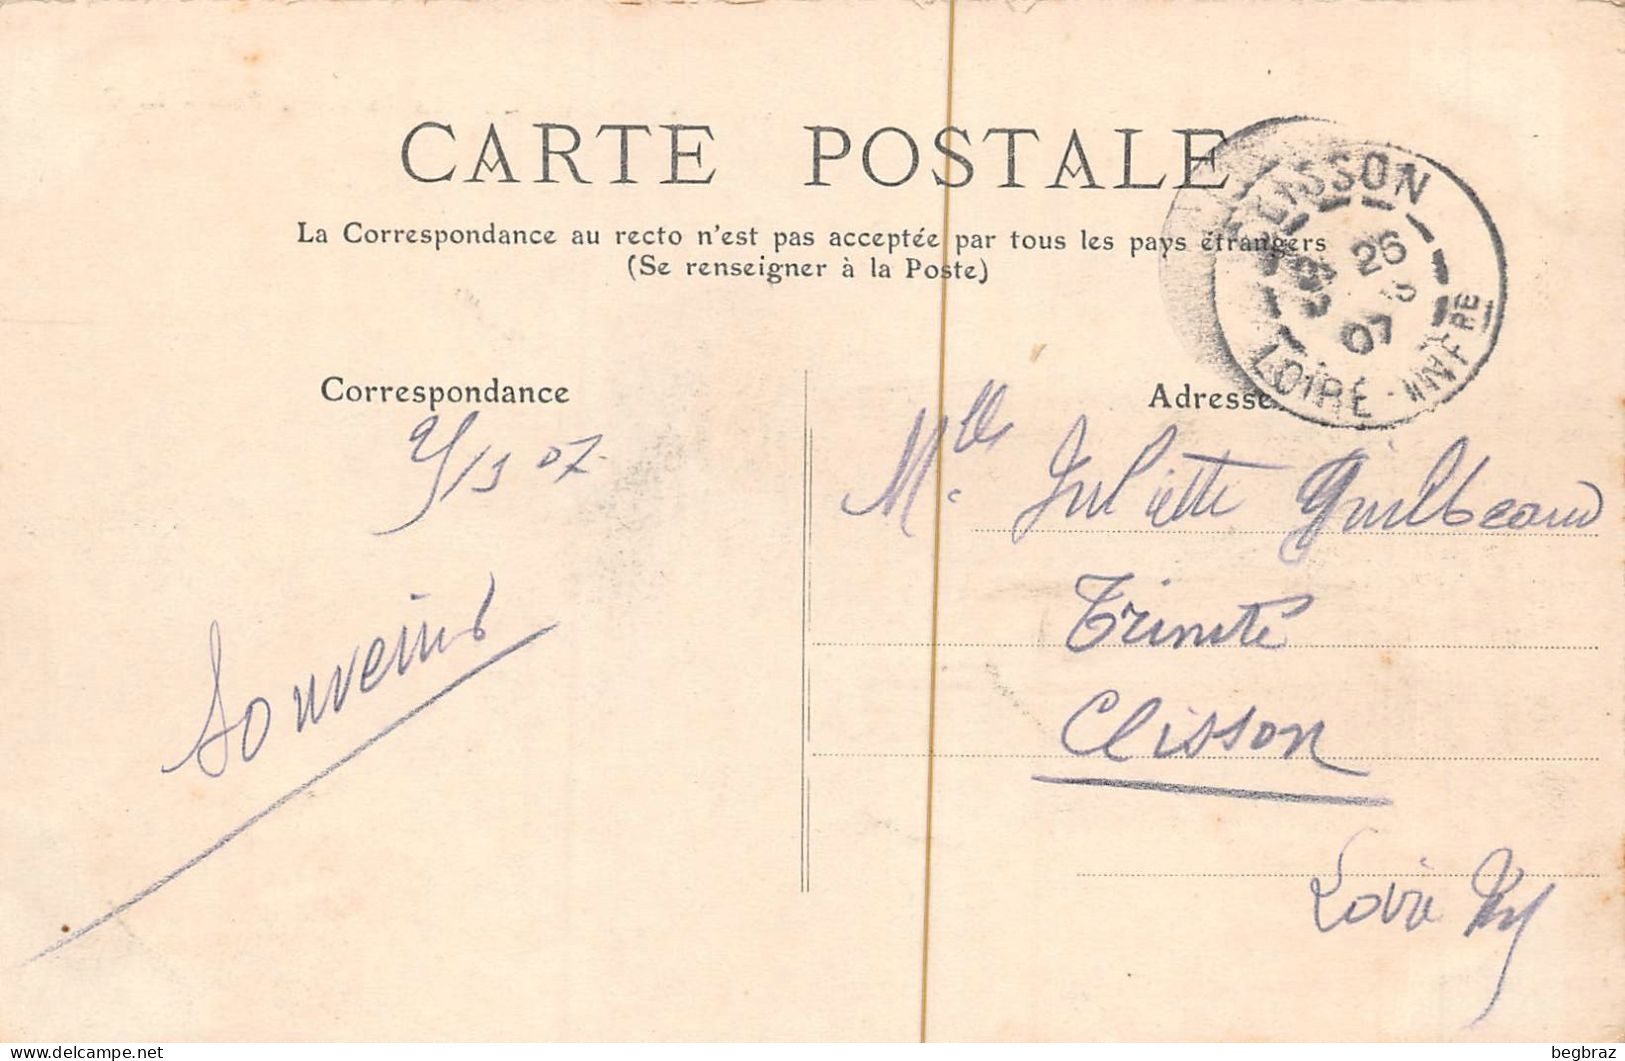 CARTE POSTALE
La Correspondance au recto n'est pas acceptée par tous les pays étrangers
(Se renseigner à la Poste)
CLISSON
26
07
LOIRE-INFRE
Correspondance
Adresse
07
Souvenirs
Mlle Juliette Guilbeaud
Trinité
Clisson
Loire
delcampe.net
begbraz